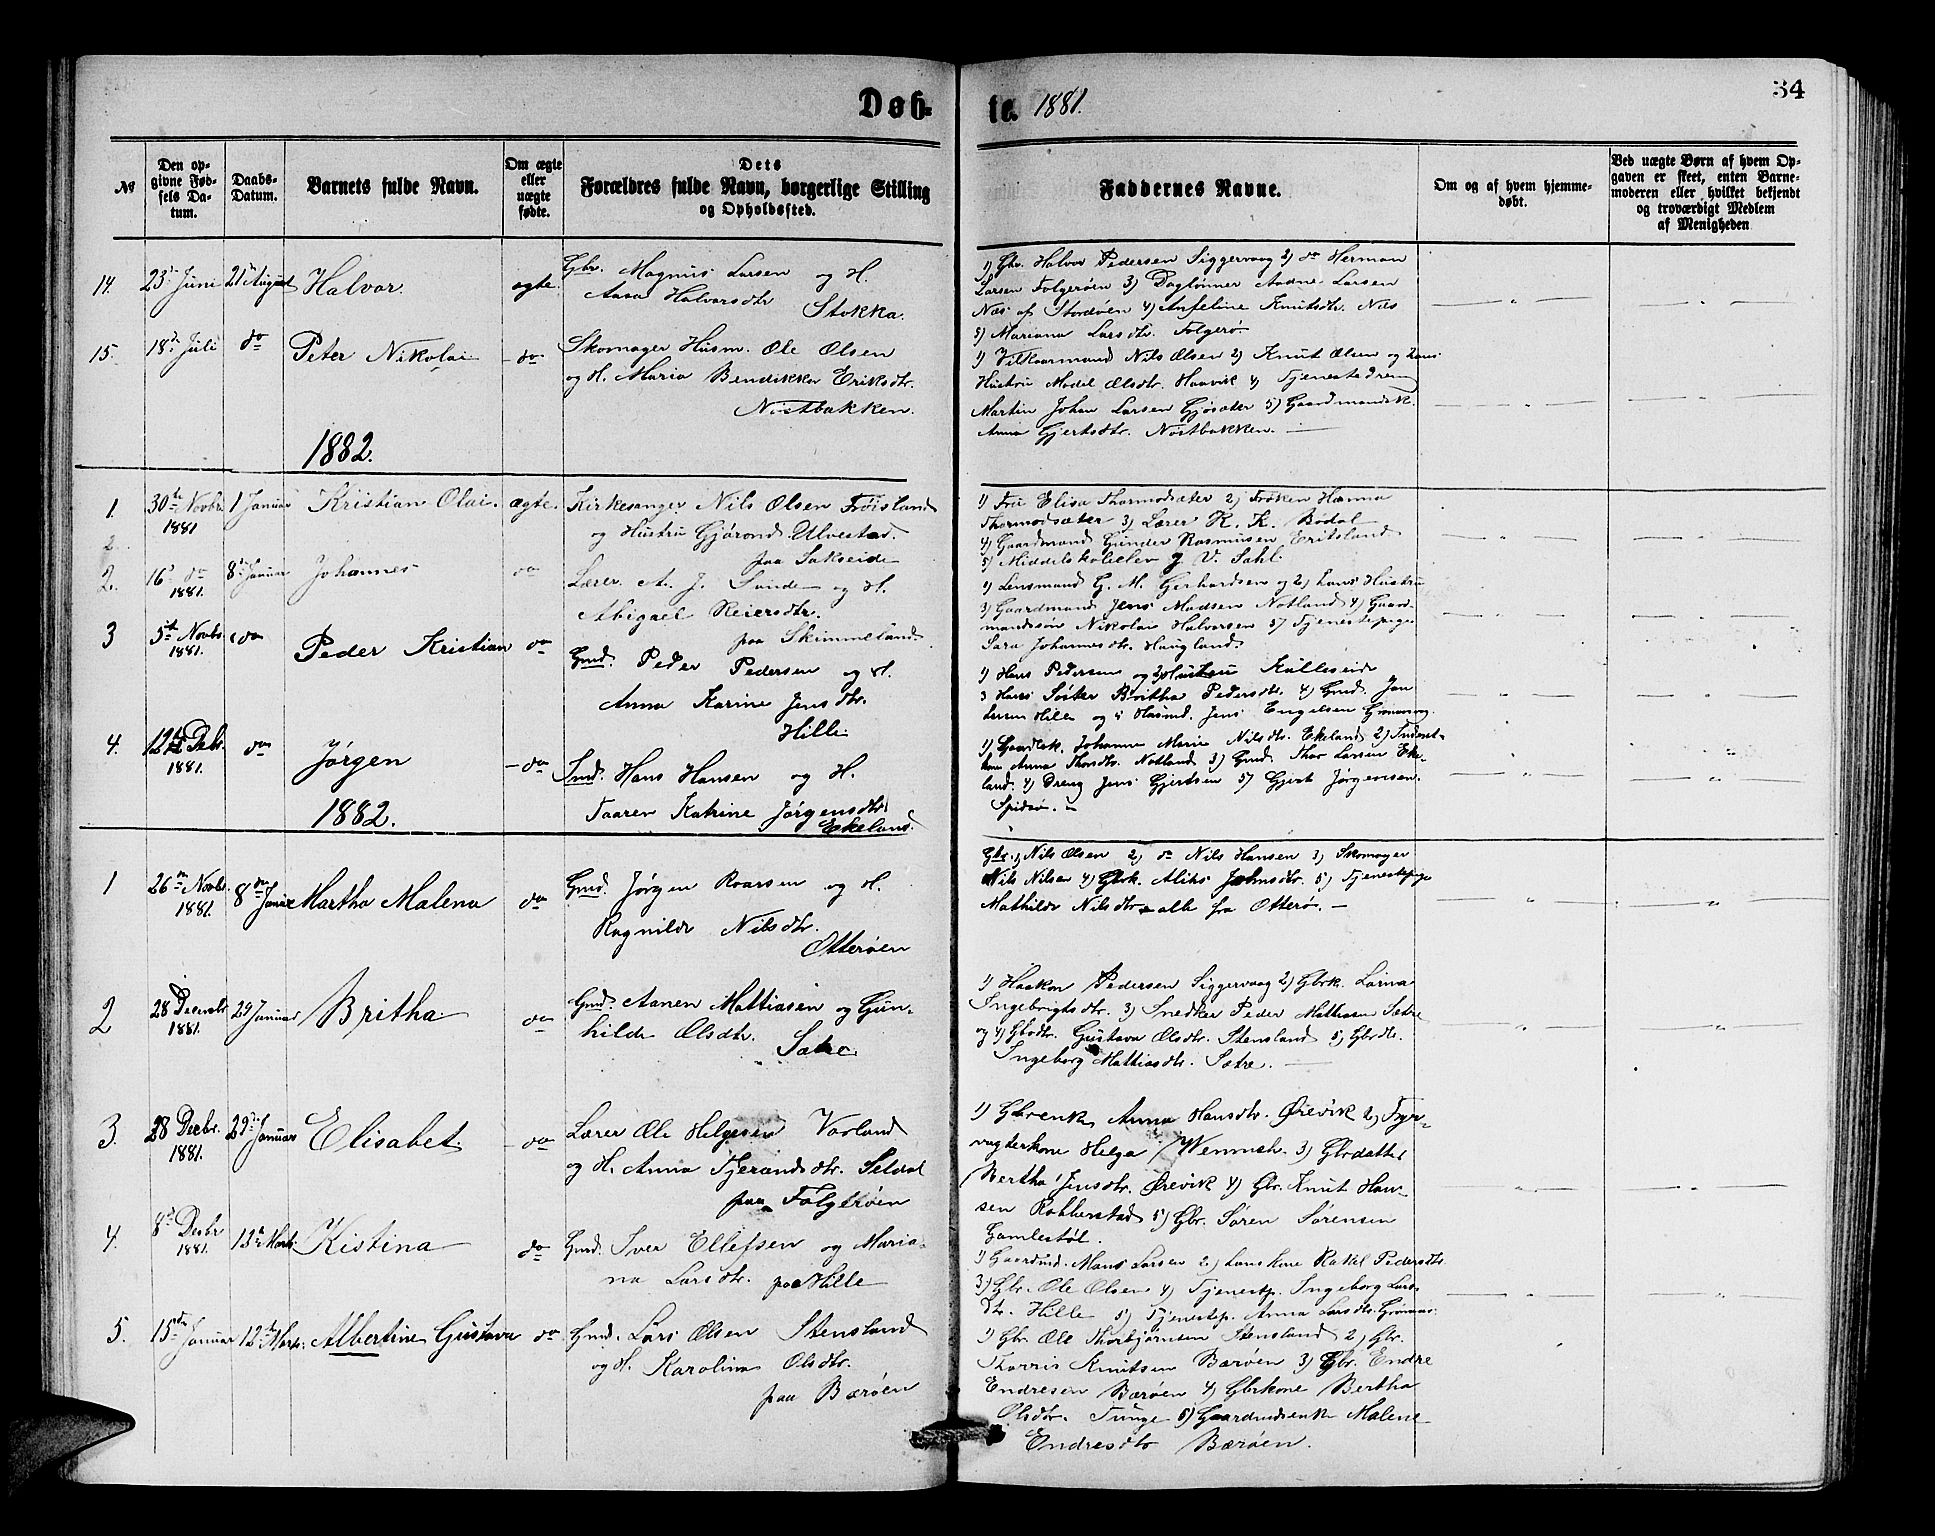 Døb-
te. 1881.
34
№
Den op-
givne Fød-
sels Da-
tum.
Daabs-
Datum.
Barnets fulde Navn.
Om ægte
eller
uægte
fødte.
Dets
Forældres fulde Navn, borgerlige Stilling
og Opholdssted.
Faddernes Navne.
Om og af hvem hjemme-
døbt.
Ved uægte Børn af hvem Op-
gaven er skeet, enten Barne-
moderen eller hvilket bekjendt
og troværdigt Medlem
af Menigheden
14. 23de Juni 21de August Halvor. ægte. Gbr. Magnus Larsen og H.
Aasa Halvorsdtr
Stokka.
1) Gbr. Halvor Pedersen Siggervaag 2) do Herman
Larsen Folgerøen 3) Daglønner Aadne Larsen
Næs af Stordøen 4) Anfeline Knutsdtr. Næs
5) Mariana Larsdtr. Folgerø.
15. 18de Juli do Peter Nikolai do Skomager Husm. Ole Olsen
og H. Maria Bendikka Eriksdtr.
Nøstbakken.
1) Vilkaarmand Nils Olsen 2) Knut Olsen og hans
Hustru Madel Olsdtr. Haavik 4) Tjenestedreng
Martin Johan Larsen Gjøsæter 5) Gaardmandsk.
Anna Gjertsdtr. Nøstbakken.
1882.
1. 30te Novbr. 1 Januar Kristian Olai. ægte. Kirkesanger Nils Olsen Frøisland
1881
og Hustru Gjørond Ulvestad.
paa Sakseide
1) Fru Elisa Thormodsæter 2) Frøken Hanna
Thormodsæter 3) Lærer K. K. Bødal
4) Gaardmand Gunder Rasmusen Eritsland
5) Middelskoleelev J. V. Sahl
2.
2. 16de do 8de Januar Johannes do Lærer A. J. Sunde og H.
1881.
Abigael Reiersdtr.
paa Skimmeland.
1) Lensmand G. M. Gerhardsen og 2) hans Hustru
3) Gaardmand Jens Madsen Notland 4) Gaard-
mandssøn Nikolai Halvorsen 5) Tjenestepige
Sara Johannesdtr. Haugland.
3 5te Novbr. do Peder Kristian do Gmd. Peder Pedersen og H.
1881.
Anna Karine Jensdtr.
Hille
1) Hans Pedersen og 2) Hustru Kulleseid
3 Hans Søster Britha Pedersdtr. 4) Gmd. Jan
Larsen Hille og 5 Husmd. Jens Engelsen
4. 12te Decbr. do Jørgen do Gmd. Hans Hansen og H.
1881.
Taaren Katrine Jørgensdtr.
Ekeland.
1) Gaardbk. Johanne Marie Nilsdtr. Ekeland 2)
Anna Thorsdtr. Notland 3) Gmd. Thor Larsen Eke-
land. 4) Dreng Jens Gjertsen 5) Gjert Jørgensen
Spidsø.
1882.
1 26de Novbr. 8de Januar Martha Malena do Gmd. Jørgen Roarsen og H.
1881.
Ragnilde Nilsdtr.
Otterøen
Gbr. 1) Nils Olsen 2) do Nils Hansen 3) Skomager
Nils Nilsen 4) Gbrk. Alihs Johnsdtr. 5) Tjenestepige
Mathilde Nilsdtr. alle fra Otterø.
2 28 Decembr 29 Januar Britha. do Gmd. Aanen Mattiasen og Gun-
1881.
hilde Olsdtr.
Sætre.
1) Haakon Pedersen Siggervaag 2) Gbrk. Lorina
Ingebrigtsdtr. 3) Snedker Peder Mathisen Sætre
og 4) Gbrdtr. Gustava Olsdtr. Stensland 5) Gbrdtr.
Ingeborg Mattiasdtr. Sætre.
3. 28 Decbr. 29de Januar Elisabet. do Lærer Ole Helgesen Vorland
1881.
og H. Anna Tjerandsdtr. Seldal
paa Folgerøen
1) Gbrenk. Anna Hansdtr. Ørevik 2) Fyr-
vogterkone Helga Wennech. 3) Gbrdatter
Bertha Jensdtr. Ørevik 4) Gbr. Knut Han-
sen Robberstad 5) Gbr. Søren Sørensen
Gamlestøl.
4. 8de Decbr 13de Marts. Kistina do Gmd. Iver Ellefsen og Maria-
1881.
na Larsdtr. paa Hille
1) Gaardmd. Mans Larsen 2) hans kone Rakel Pedersdtr.
3) Gbr. Ole Olsen 4) Tjenestp. Ingeborg Lars
Dtr. Hille 5) Tjenestp. Anna Larsdtr.
5. 15de Januar 12te Marts. Albertine Gustava do Gmd. Lars Olsen Stensland
og H. Karolina Olsdtr.
paa Bærøen
1) Gbr. Ole Thorbjørnsen Stensland 2) Gbr.
Thorris Knutsen Bærøen 3) Gbr. Endre
Endresen Bærøen 4) Gbrkone Bertha
Olsdtr. Tunge 5) Gaardmdsenk Malene
Endresdtr Bærøen.